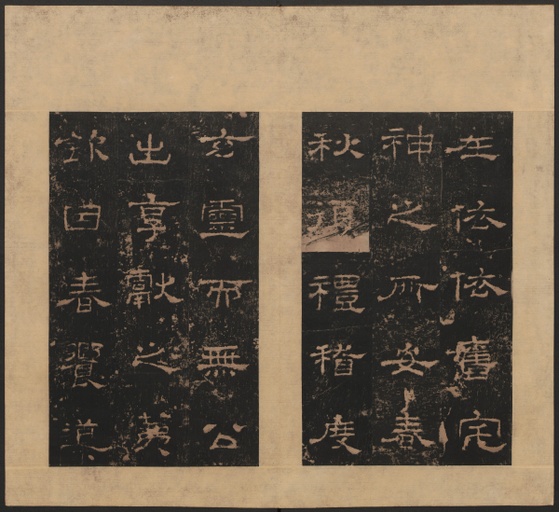 在依依舊宅
神之所安春
秋禮稽度
玄靈而無公
出享獻之薦
欽因春饗導